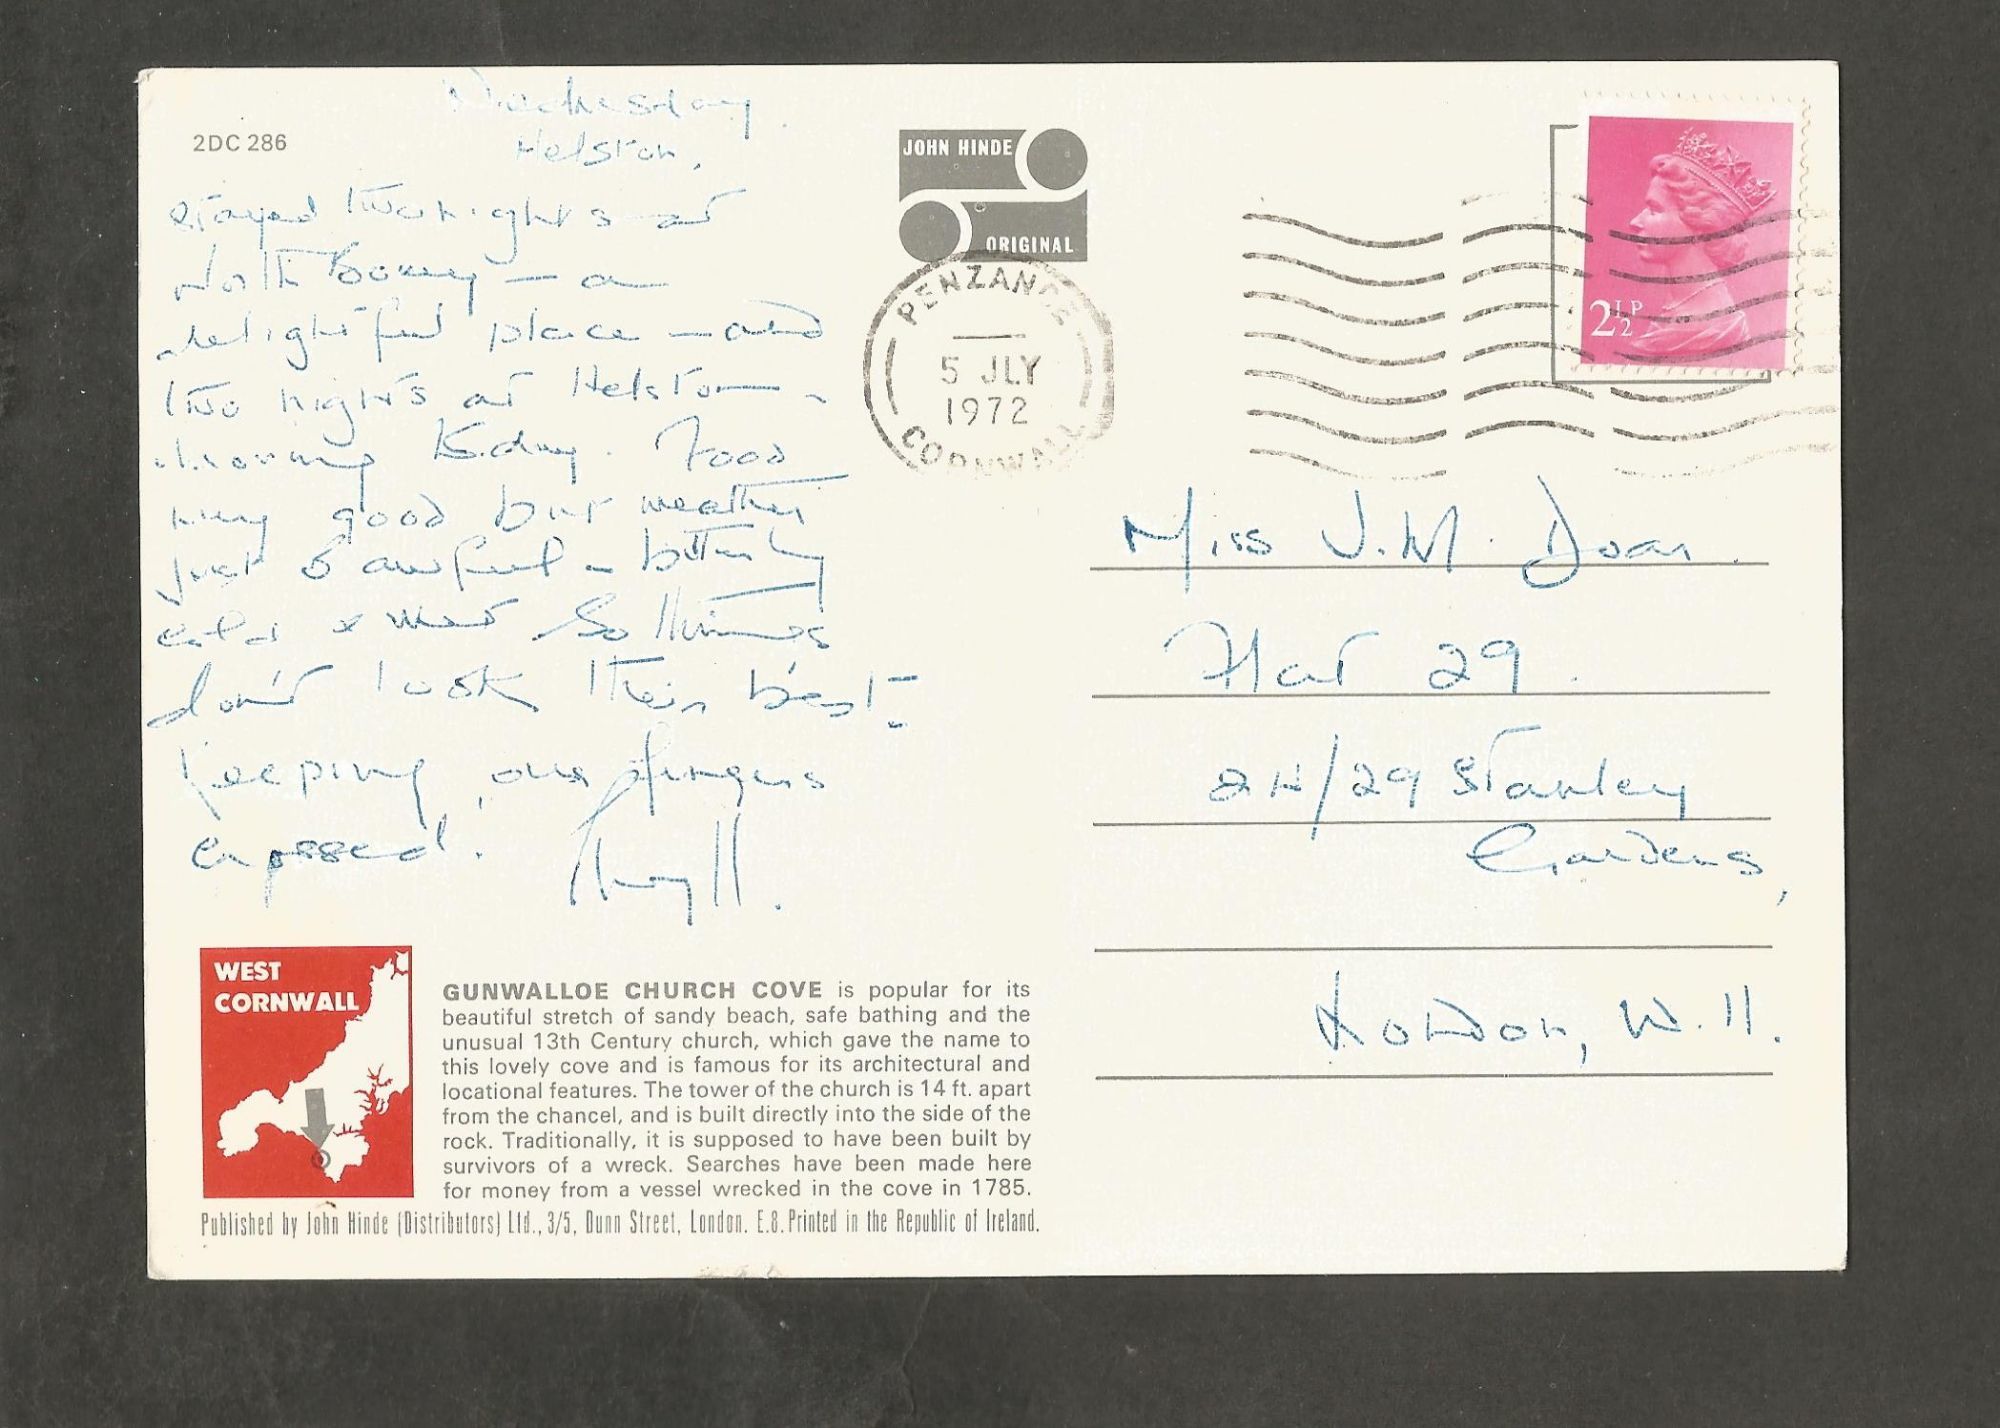 2DC 286
Wednesday.
Helston,
Stayed two nights at
North Bovey — a
delightful place — and
two nights at Helston -
moving today. Food
very good but weather
just awful - bitterly
cold & wet So things
don't look their best -
Keeping our fingers
crossed.
JOHN HINDE
ORIGINAL
PENZANCE
5 JLY
1972
CORNWALL
2½P
Miss J.M. Doar.
Flat 29.
24/29 Stanley
Gardens,
London, W.11.
WEST
CORNWALL
GUNWALLOE CHURCH COVE is popular for its
beautiful stretch of sandy beach, safe bathing and the
unusual 13th Century church, which gave the name to
this lovely cove and is famous for its architectural and
locational features. The tower of the church is 14 ft. apart
from the chancel, and is built directly into the side of the
rock. Traditionally, it is supposed to have been built by
survivors of a wreck. Searches have been made here
for money from a vessel wrecked in the cove in 1785.
Published by John Hinde (Distributors) Ltd., 3/5, Dunn Street, London. E.8. Printed in the Republic of Ireland.